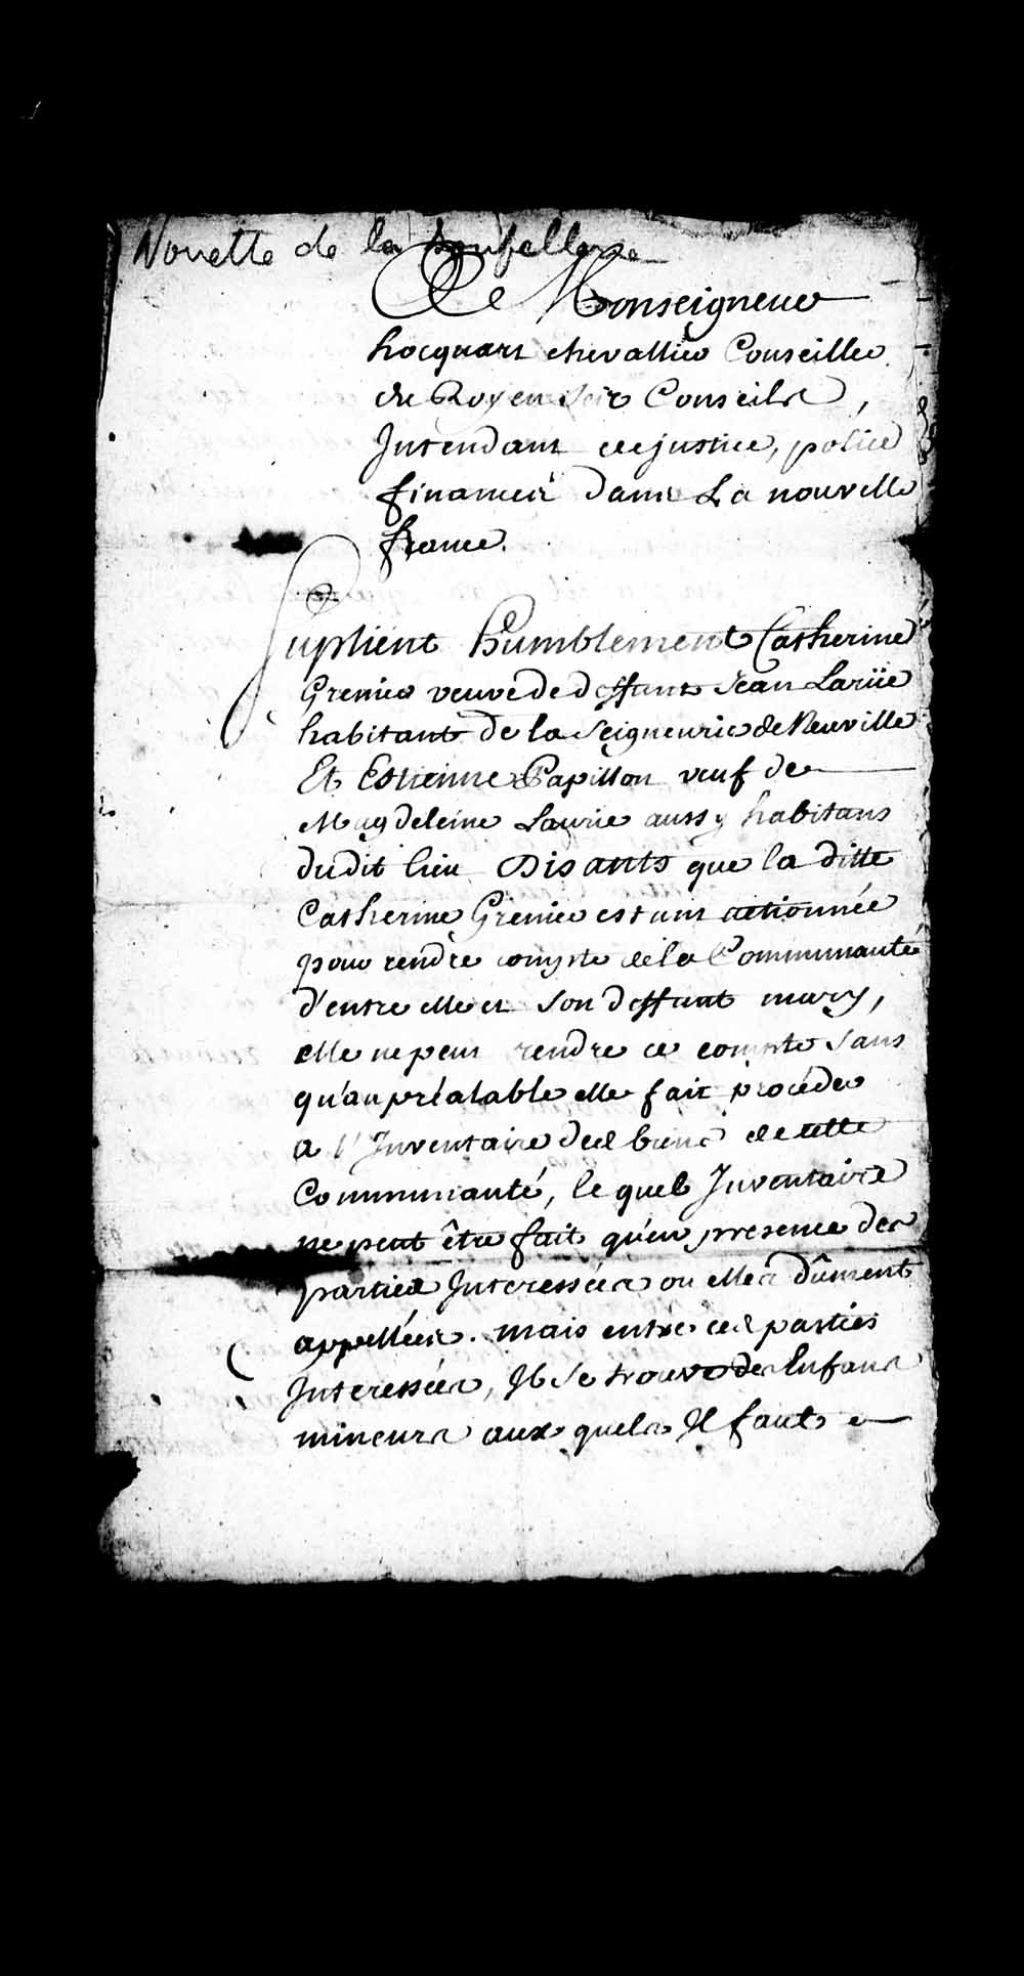 Nouette de la Soufellerie
A Monseigneur
hocquart chevallier Conseiller
du Roy en ses Conseils,
Intendant de justice, police
finances dans La nouvelle
france.
Suplient humblement Catherine
Grenier veuve de deffunt Jean Larüe
habitant de la Seigneurie de Neuville
Et Estienne Papillon veuf de
Magdeleine Larüe aussy habitans
dudit lieu Disants que la ditte
Catherine Grenier estant actionnée
pour rendre compte de la Communauté
d'entre elle et son deffunt mary,
elle ne peut rendre ce compte sans
qu'au préalable elle fait procéder
a l'Inventaire des biens de cette
Communauté, le quel Inventaire
ne peut être fait qu'en presence des
parties Interessées ou elles dûment
appellées. mais entre ces parties
Interessées, Il se trouve des Enfans
mineurs aux quels Il faut